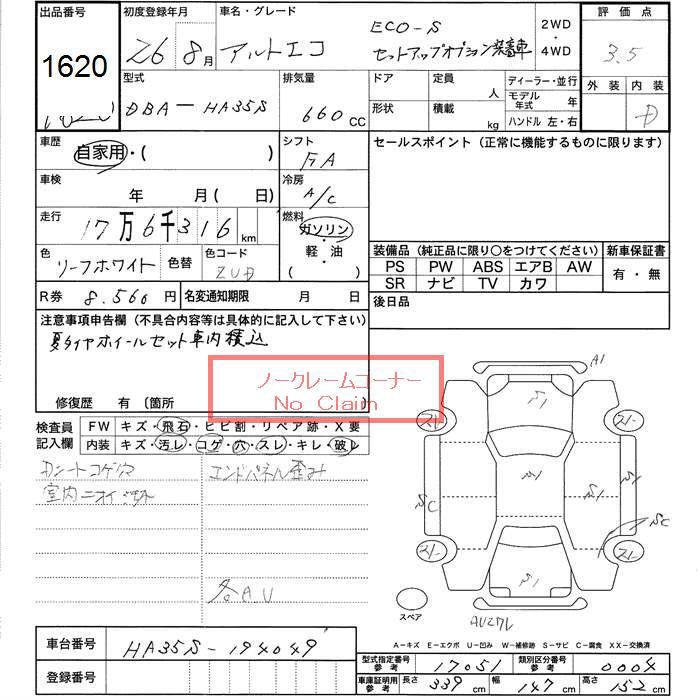 出品番号 初度登録年月 車名・グレード 評価点
1620 26年 8月 アルトエコ ECO-S 2WD・4WD 3.5
セットアップオプション装着車
外装 内装
D
型式 排気量 ドア 定員 人 ディーラー・並行
DBA-HA35S 660cc 形状 積載 kg モデル年式 年
ハンドル 左・右
車歴 自家用・( ) シフト FA セールスポイント(正常に機能するものに限ります)
車検 年 月( 日) 冷房 A/C
走行 17万6千316km 燃料 ガソリン・軽油( )
色 リーフホワイト 色替 色コード ZVD
装備品(純正品に限り○をつけてください) 新車保証書
PS PW ABS エアB AW 有・無
SR ナビ TV カワ
R券 8.560円 名変通知期限 月 日 後日品
注意事項申告欄(不具合内容等は具体的に記入して下さい)
夏タイヤホイールセット車内積込
ノークレームコーナー
No Claim
修復歴 有〔箇所
検査員記入欄 FW キズ・飛石・ヒビ割・リペア跡・X要
内装 キズ・汚レ・コゲ・穴・スレ・キレ・破レ
エンドパネル歪み
室内ニオイ
各A.U
A1
S1
S1
S1
S1
SC
SC
スペア
A-キズ E-エクボ U-凹み W-補修跡 S-サビ C-腐食 XX-交換済
車台番号 HA35S-194049
登録番号
型式指定番号参考 17051 類別区分番号参考 0004
車庫証明用参考 長さ 339cm 幅 147cm 高さ 152cm